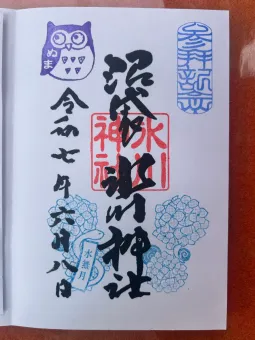 参拝記念
沼袋氷川神社
氷川
神社
令和七年六月八日
ぬま
水無月